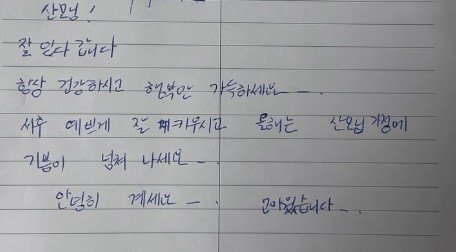 산모님!
잘 있다 갑니다
항상 건강하시고 행복만 가득하세요 ─.
서우 예쁘게 잘 키우시고 올해는 산모님 가정에
기쁨이 넘쳐 나세요 ─.
안녕히 계세요 ─. 고마웠습니다 ─.